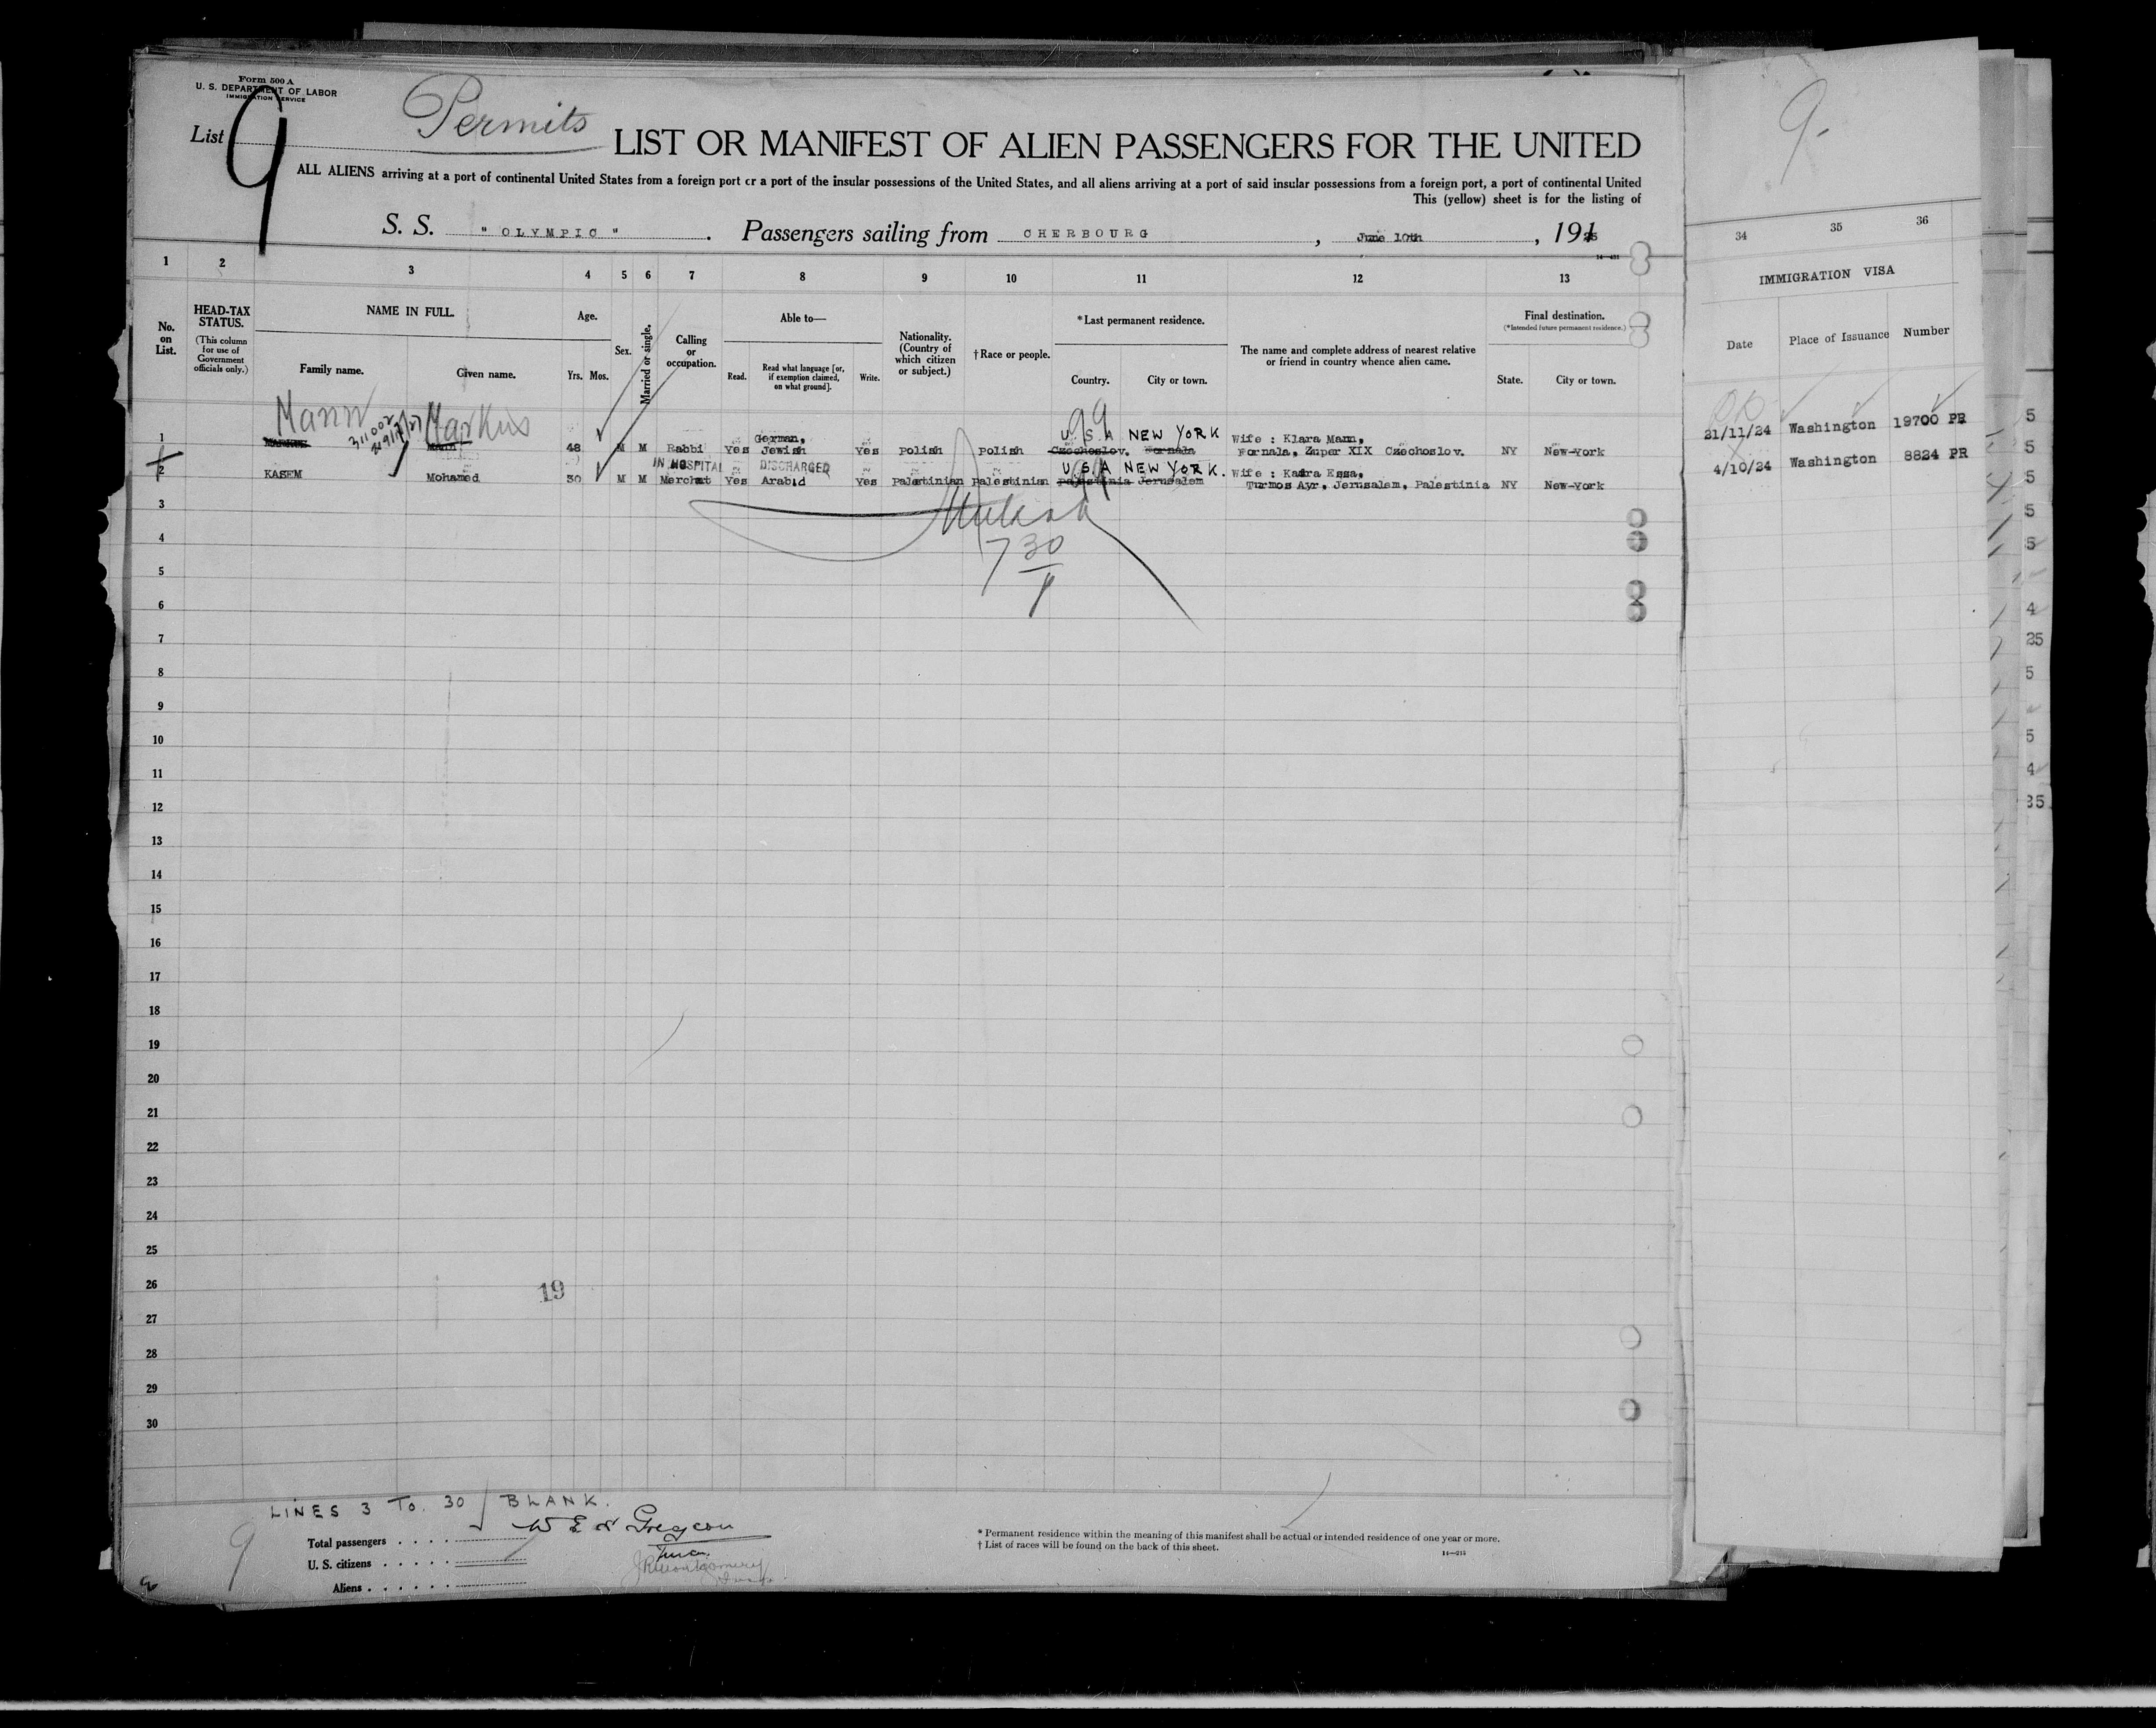 Form 500 A
U. S. DEPARTMENT OF LABOR
IMMIGRATION SERVICE
List 9
Permits
LIST OR MANIFEST OF ALIEN PASSENGERS FOR THE UNITED
ALL ALIENS arriving at a port of continental United States from a foreign port or a port of the insular possessions of the United States, and all aliens arriving at a port of said insular possessions from a foreign port, a port of continental United
This (yellow) sheet is for the listing of
S. S. "OLYMPIC". Passengers sailing from CHERBOURG, June 10th, 1925
1 2 3 4 5 6 7 8 9 10 11 12 13
No. on List.
HEAD-TAX STATUS.
(This column for use of Government officials only.)
NAME IN FULL.
Family name. Given name.
Age.
Yrs. Mos.
Sex.
Married or single.
Calling or occupation.
Able to—
Read. Read what language [or, if exemption claimed, on what ground]. Write.
Nationality. (Country of which citizen or subject.)
†Race or people.
*Last permanent residence.
Country. City or town.
The name and complete address of nearest relative or friend in country whence alien came.
Final destination.
(*Intended future permanent residence.)
State. City or town.
9-
34 35 36
IMMIGRATION VISA
Date Place of Issuance Number
Mann Markus
99
U S A NEW YORK
1 Mann 48 M M Rabbi Yes German, Jewish Yes Polish Polish Czechoslov. Fornala Wife : Klara Mann,
Fornala, Zuper XIX Czechoslov. NY New-York
21/11/24 Washington 19700 PR
IN HOSPITAL DISCHARGED
U S A NEW YORK.
2 KASEM Mohamed 30 M M Merchat Yes Arabid Yes Palestinian Palestinian Palestinia Jerusalem Wife : Kadra Essa,
Turmos Ayr, Jerusalem, Palestinia NY New-York
4/10/24 Washington 8824 PR
3
4
7 30
5
6
7
8
9
10
11
12
13
14
15
16
17
18
19
20
21
22
23
24
25
26
19
27
28
29
30
LINES 3 TO. 30 BLANK.
9
Total passengers
U. S. citizens
Aliens
* Permanent residence within the meaning of this manifest shall be actual or intended residence of one year or more.
† List of races will be found on the back of this sheet.